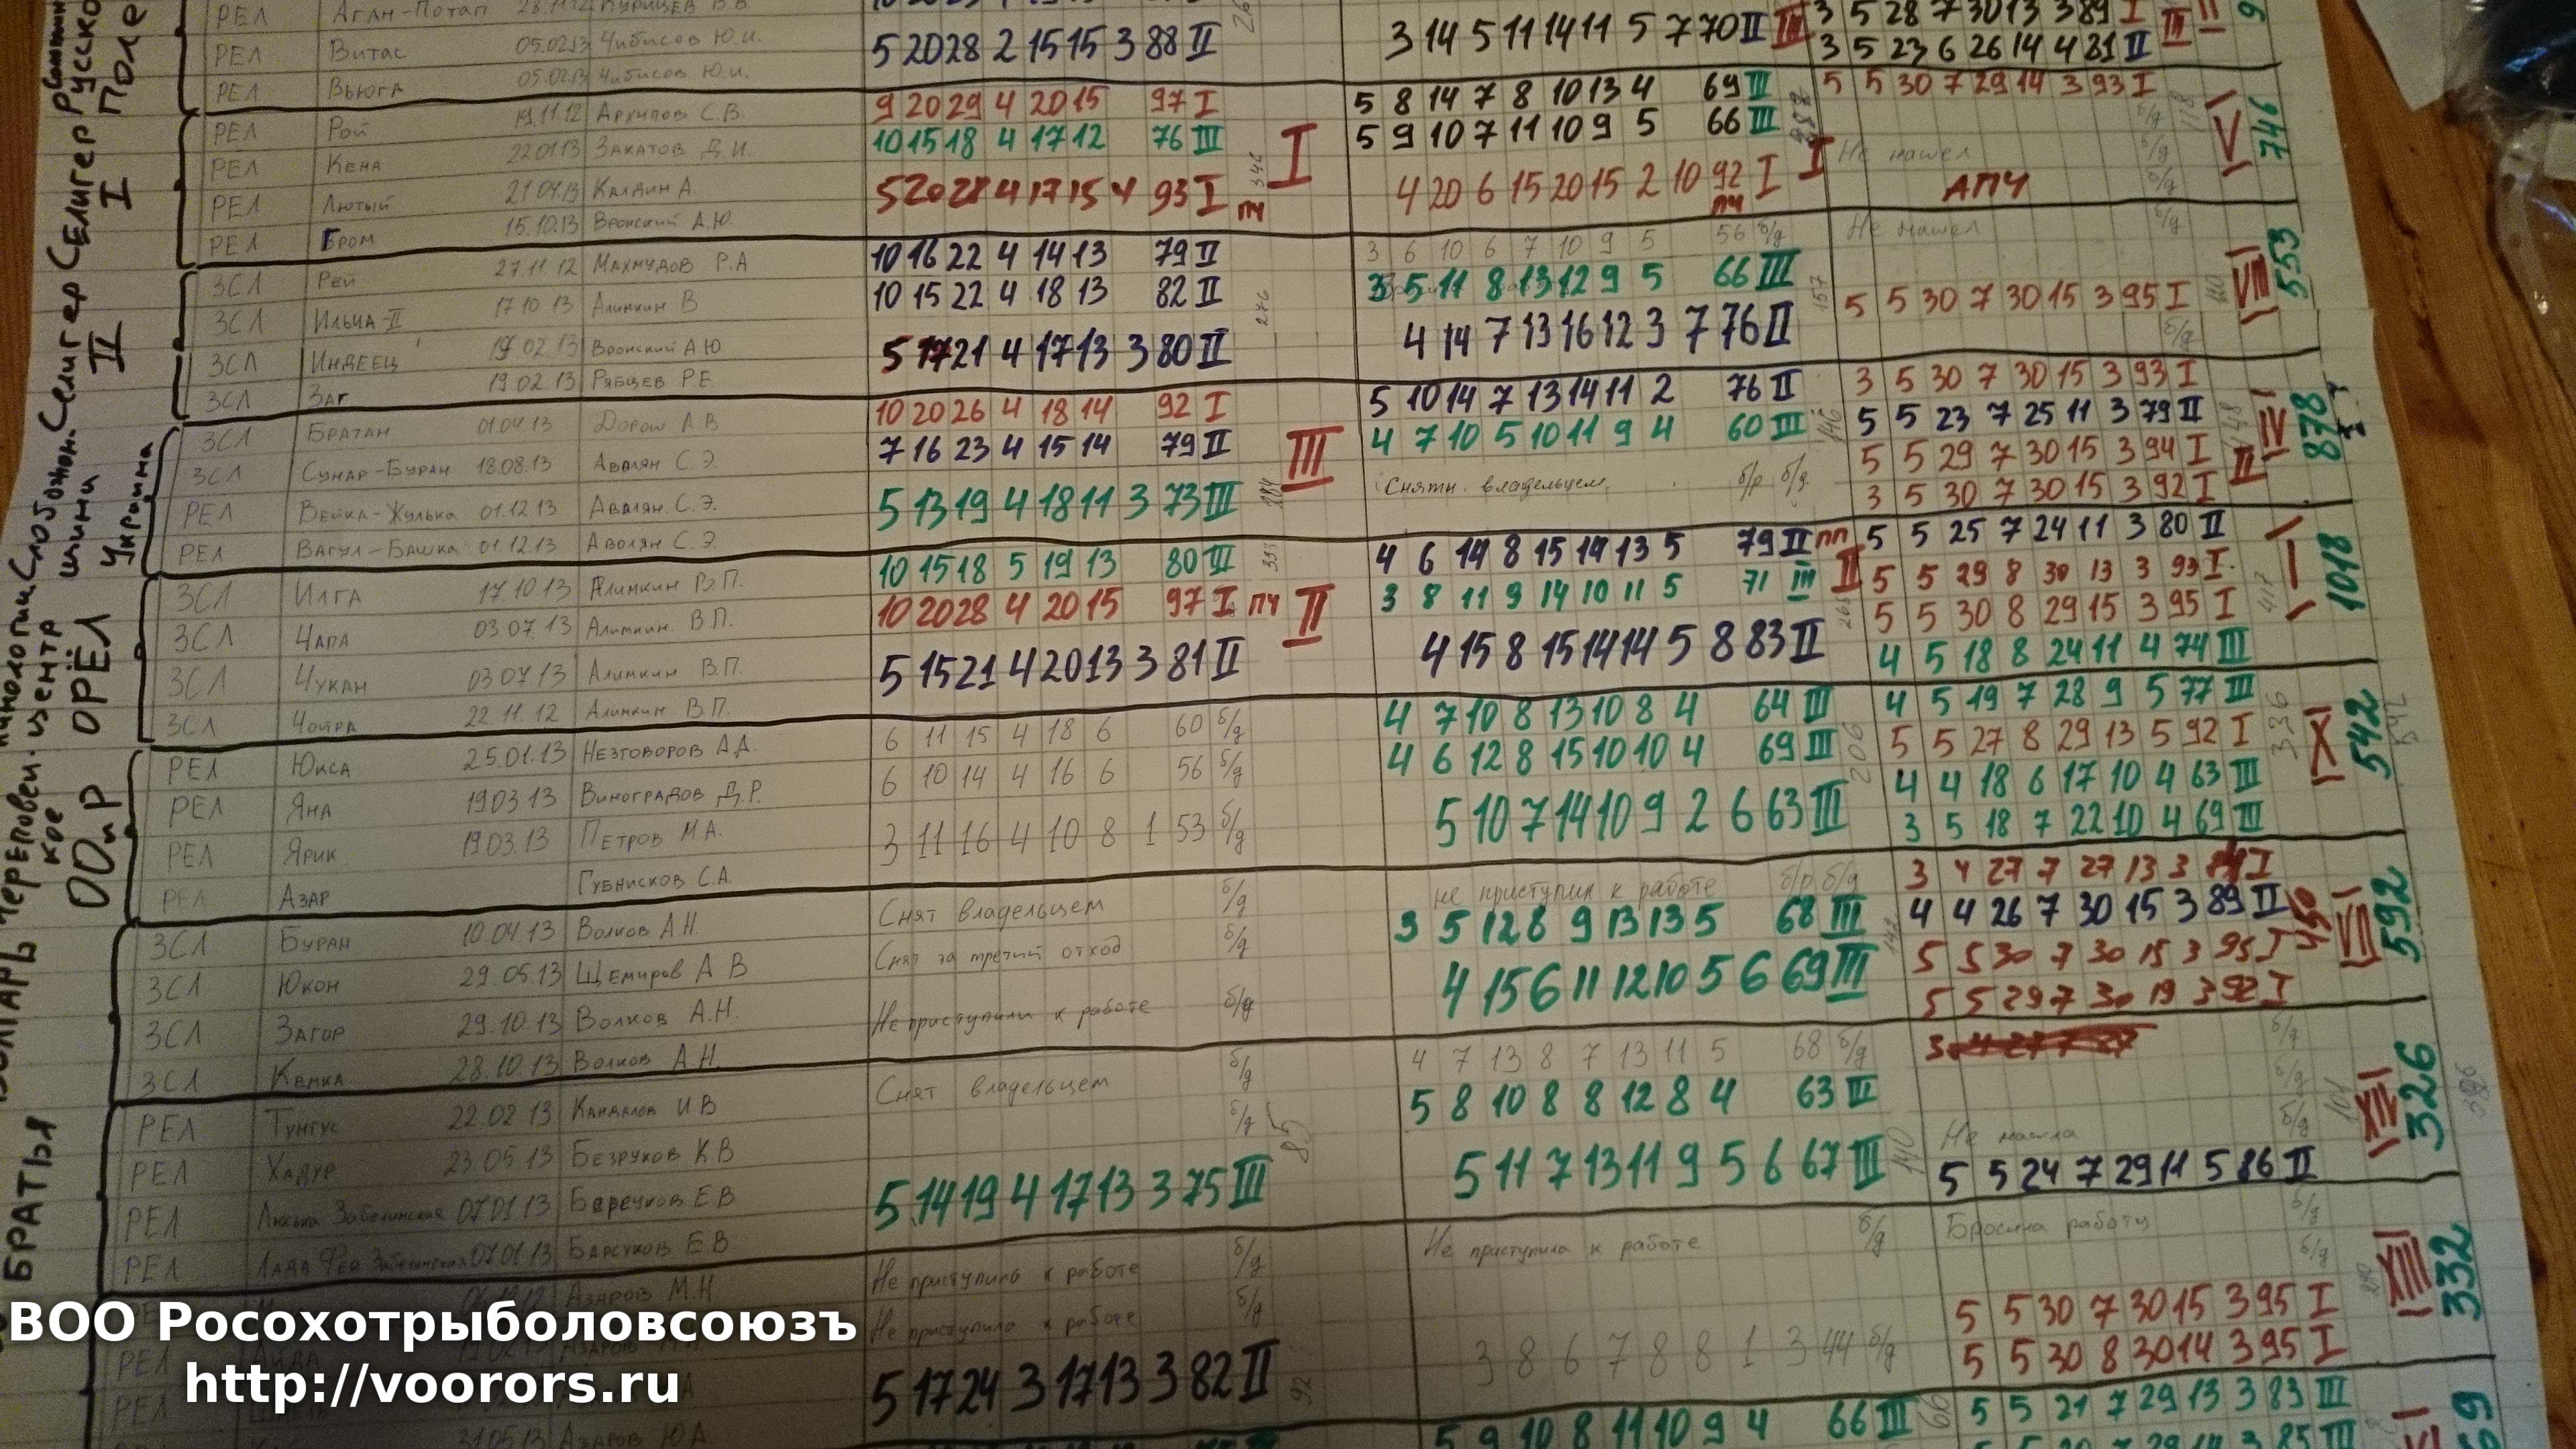 РЕЛ Аган-Потап
РЕЛ Витас 05.02.13 Чибисов Ю.И. 5 20 28 2 15 15 3 88 II 3 14 5 11 14 11 5 7 70 II III 3 5 28 7 30 13 3 89 I
РЕЛ Вьюга 05.02.13 Чибисов Ю.И. 3 5 23 6 26 14 4 81 II III
Селигер I
РЕЛ Рой 19.11.12 Архипов С.В. 9 20 29 4 20 15 97 I 5 8 14 7 8 10 13 4 69 III 5 5 30 7 29 14 3 93 I 118
РЕЛ Кена 22.01.13 Закатов Д.И. 10 15 18 4 17 12 76 III 346 I 5 9 10 7 11 10 9 5 66 III б/д V 746
РЕЛ Лютый 21.04.13 Калдин А. 5 20 28 4 17 15 4 93 I ПЧ 4 20 6 15 20 15 2 10 92 I ПЧ I Не нашел б/д
РЕЛ Гром 15.10.13 Вронский А.Ю. АПЧ б/д
Селигер II
ЗСЛ Рей 27.11.12 Махмудов Р.А 10 16 22 4 14 13 79 II 3 6 10 6 7 10 9 5 56 б/д Не нашел б/д
ЗСЛ Ильча-II 17.10.13 Алимкин В 10 15 22 4 18 13 82 II 276 5 11 8 13 12 9 5 66 III 157 VIII 553
ЗСЛ Индеец 19.02.13 Вронский А.Ю 5 17 21 4 17 13 3 80 II 4 14 7 13 16 12 3 7 76 II 5 5 30 7 30 15 3 95 I
ЗСЛ Заг 19.02.13 Рябцев Р.Е б/д
Украина
ЗСЛ Братан 01.04.13 Дорош А.В 10 20 26 4 18 14 92 I 5 10 14 7 13 14 11 2 76 II 3 5 30 7 30 15 3 93 I
ЗСЛ Сунар-Буран 18.08.13 Авалян С.Э. 7 16 23 4 15 14 79 II III 4 7 10 5 10 11 9 4 60 III 146 5 5 23 7 25 11 3 79 II IV 878
РЕЛ Вейка-Жулька 01.12.13 Авалян С.Э. 5 13 19 4 18 11 3 73 III Снятн. владельцем б/р б/д 5 5 29 7 30 15 3 94 I II
РЕЛ Вагул-Башка 01.12.13 Авалян С.Э. 3 5 30 7 30 15 3 92 I
ОРЁЛ
ЗСЛ Илга 17.10.13 Алимкин В.П. 10 15 18 5 19 13 80 III 4 6 14 8 15 14 13 5 79 II ПП 5 5 25 7 24 11 3 80 II
ЗСЛ Чапа 03.07.13 Алимкин В.П. 10 20 28 4 20 15 97 I ПЧ II 3 8 11 9 14 10 11 5 71 III II 5 5 29 8 30 13 3 93 I 417 I 1018
ЗСЛ Чукан 03.07.13 Алимкин В.П. 5 15 21 4 20 13 3 81 II 4 15 8 15 14 14 5 8 83 II 5 5 30 8 29 15 3 95 I
ЗСЛ 22.11.12 Алимкин В.П. 4 5 18 8 24 11 4 74 III
ООиР
РЕЛ Юкса 25.01.13 Незговоров А.Д. 6 11 15 4 18 6 60 б/д 4 7 10 8 13 10 8 4 64 III 4 5 19 7 28 9 5 77 III
РЕЛ Яна 19.03.13 Виноградов Д.Р. 6 10 14 4 16 6 56 б/д 4 6 12 8 15 10 10 4 69 III 206 5 5 27 8 29 13 5 92 I 336 X 542
РЕЛ Ярик 19.03.13 Петров М.А. 3 11 16 4 10 8 1 53 б/д 5 10 7 14 10 9 2 6 63 III 4 4 18 6 17 10 4 63 III
РЕЛ Азар Губнисков С.А. 3 5 18 7 22 10 4 69 III
ЗСЛ Буран 10.04.13 Волков А.Н. Снят владельцем б/д не приступил к работе б/р б/д 3 4 27 7 27 13 3 I
ЗСЛ Юкон 29.05.13 Щемиров А В Снят за третий отход б/д 3 5 12 8 9 13 13 5 68 III 142 4 4 26 7 30 15 3 89 II 450 VII 592
ЗСЛ Загор 29.10.13 Волков А.Н. Не приступили к работе б/д 4 15 6 11 12 10 5 6 69 III 5 5 30 7 30 15 3 95 I
ЗСЛ Кемка 28.10.13 Волков А.Н. 5 5 29 7 30 19 3 92 I
БРАТЬЯ
РЕЛ Тунгус 22.02.13 Кандалов И В Снят владельцем б/д 4 7 13 8 7 13 11 5 68 б/д б/д
РЕЛ Хадур 23.05.13 Безруков К В б/д 5 8 10 8 8 12 8 4 63 III 140 б/д XIV 326
РЕЛ Люська Забелинская 07.01.13 Барсуков Е В 5 14 19 4 17 13 3 75 III 5 11 7 13 11 9 5 6 67 III Не нашла б/д
РЕЛ Лада Фея Забелинская 07.01.13 Барсуков Е В 5 5 24 7 29 11 5 86 II
Азаров М.Н Не приступила к работе б/д Не приступила к работе б/д Бросила работу б/д
РЕЛ Айда Не приступила к работе б/д б/д XIII 332
РЕЛ 5 17 24 3 17 13 3 82 II 92 3 8 6 7 8 8 1 3 44 б/д 5 5 30 7 30 15 3 95 I
31.05.13 Азаров Ю.А 5 5 30 8 30 14 3 95 I
5 9 10 8 11 10 9 4 66 III 66 5 5 21 7 29 13 3 83 III
ВОО Росохотрыболовсоюзъ
http://voorors.ru